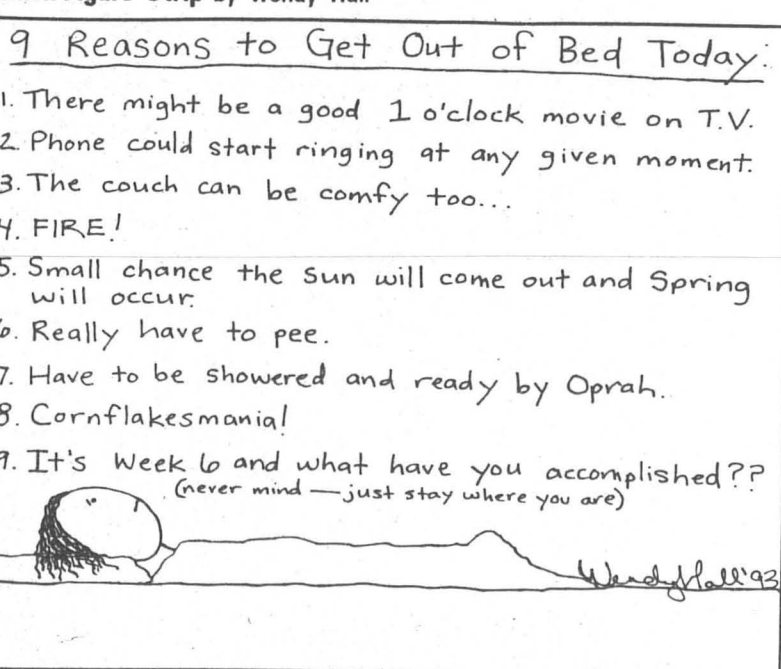 9 Reasons to Get Out of Bed Today:
1. There might be a good 1 o'clock movie on T.V.
2. Phone could start ringing at any given moment.
3. The couch can be comfy too...
4. FIRE!
5. Small chance the sun will come out and Spring
will occur.
6. Really have to pee.
7. Have to be showered and ready by Oprah.
8. Cornflakesmania!
9. It's Week 6 and what have you accomplished??
(never mind — just stay where you are)
Wendy Hall '93